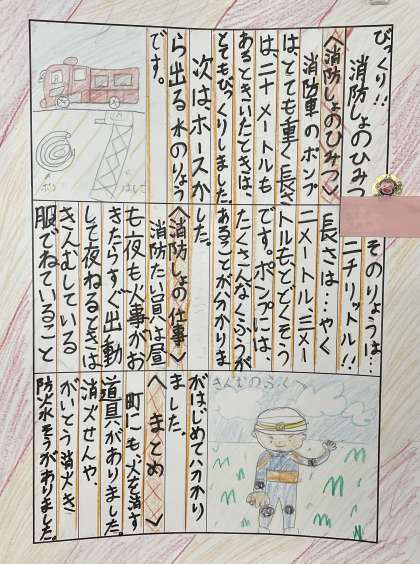 びっくり!!
消防しょのひみつ
〈消防しょのひみつ〉
消防車のポンプ
は、とても重く長さ
は、二十メートルも
あるときいたときは、
とてもびっくりしました
次はホースか
ら出る水のりょう
です。
ホース
はしご
そのりょうは…
ニチリットル!!
長さは…やく
二メートル、三メー
トルもとどくそう
です。ポンプには、
たくさんなくふうが
あることが分かりま
した。
〈消防しょの仕事〉
消防たい員は昼
も夜も火事がお
きたらすぐ出動
して夜ねるときは
きんむしている
服でねていること
がはじめて分かり
ました。
〈まとめ〉
町にも、火を消す
道具がありました。
消火せんや、
がいとう消火き
防火水そうがありました。
きんむのふく